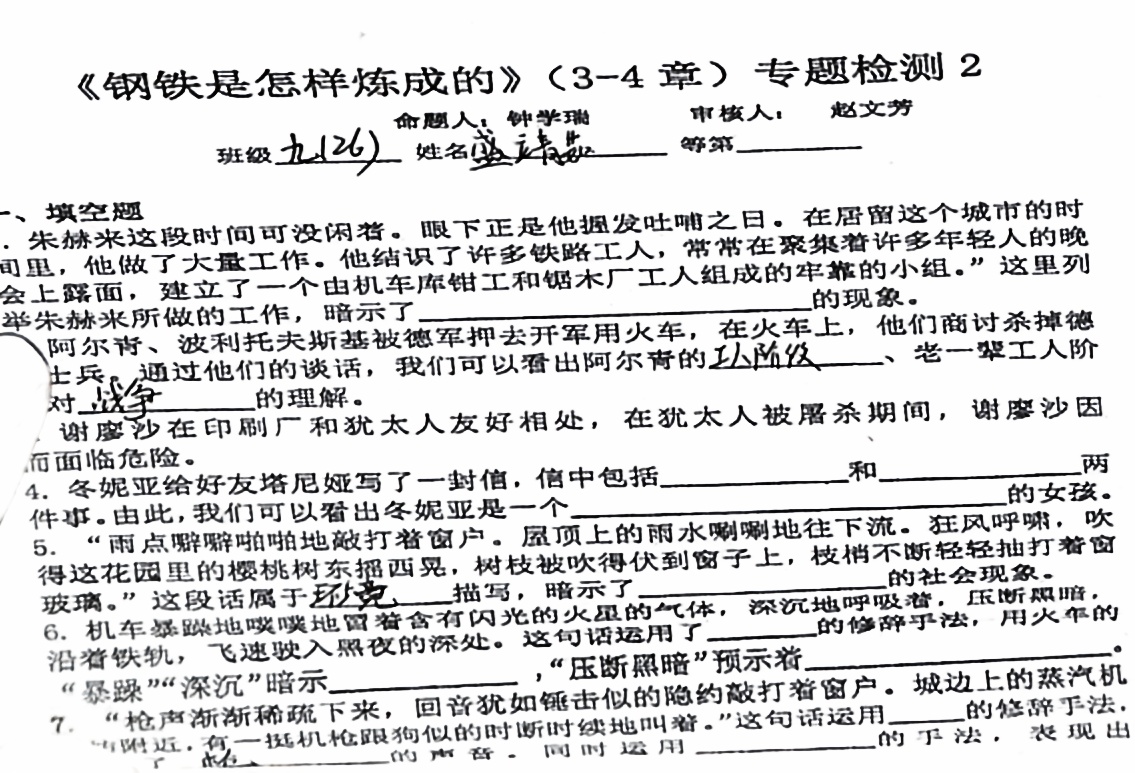 《钢铁是怎样炼成的》（3-4 章）专题检测 2
命题人：钟学瑞 审核人： 赵文芳
班级九(26) 姓名盛 等第
一、填空题
. 朱赫来这段时间可没闲着。眼下正是他握发吐哺之日。在居留这个城市的时
间里，他做了大量工作。他结识了许多铁路工人，常常在聚集着许多年轻人的晚
会上露面，建立了一个由机车库钳工和锯木厂工人组成的牢靠的小组。”这里列
举朱赫来所做的工作，暗示了 的现象。
阿尔青、波利托夫斯基被德军押去开军用火车，在火车上，他们商讨杀掉德
士兵。通过他们的谈话，我们可以看出阿尔青的工人阶级、老一辈工人阶
对 战争 的理解。
谢廖沙在印刷厂和犹太人友好相处，在犹太人被屠杀期间，谢廖沙因
而面临危险。
4. 冬妮亚给好友塔尼娅写了一封信，信中包括 和 两
件事。由此，我们可以看出冬妮亚是一个 的女孩。
5. “雨点噼噼啪啪地敲打着窗户。屋顶上的雨水唰唰地往下流。狂风呼啸，吹
得这花园里的樱桃树东摇西晃，树枝被吹得伏到窗子上，枝梢不断轻轻抽打着窗
玻璃。”这段话属于环境描写，暗示了 的社会现象。
6. 机车暴躁地噗噗地冒着含有闪光的火星的气体，深沉地呼吸着，压断黑暗，
沿着铁轨，飞速驶入黑夜的深处。这句话运用了 的修辞手法，用火车的
“暴躁”“深沉”暗示 ，“压断黑暗”预示着 。
7. “枪声渐渐稀疏下来，回音犹如锤击似的隐约敲打着窗户。城边上的蒸汽机
附近，有一挺机枪跟狗似的时断时续地叫着。”这句话运用 的修辞手法，
了 的声音。同时运用 的手法，表现出